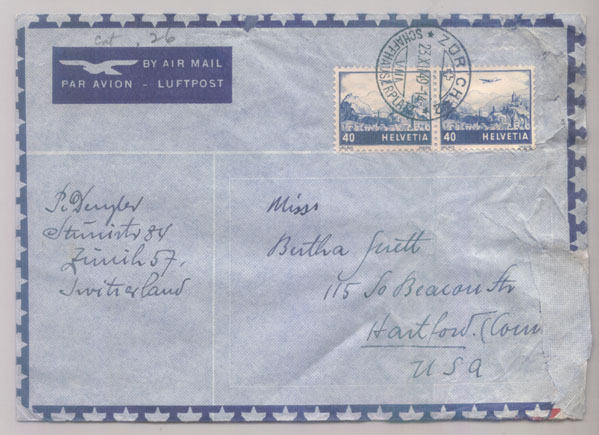 Cat . 26
BY AIR MAIL
PAR AVION - LUFTPOST
ZÜRICH
23.XI.49-14
SCHAFFHAUSERPLATZ
40 HELVETIA
40 HELVETIA
P. Dengler
Stünistr 84
Zürich 57,
Switzerland
Miss
Bertha
115 So Beacon Str
Hartford. (Conn
USA